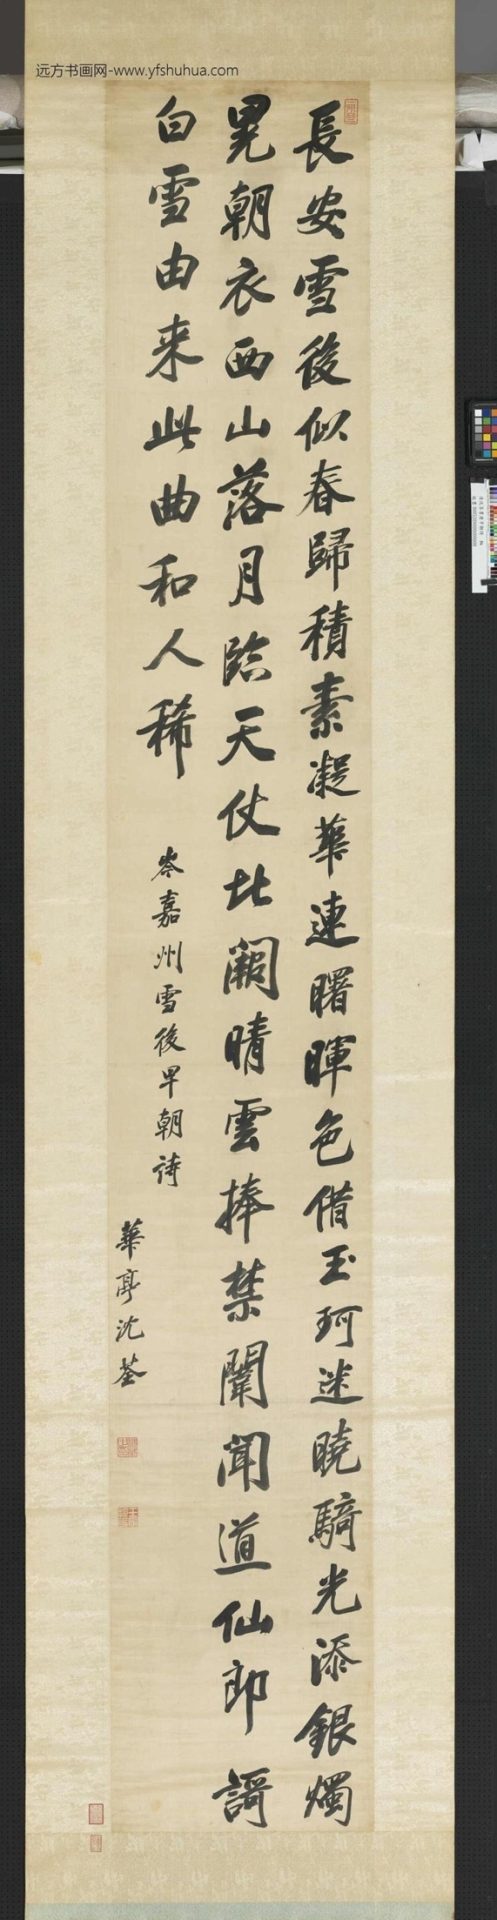 远方书画网-www.yfshuhua.com
長安雪後似春歸積素凝華連曙暉色借玉珂迷曉騎光添銀燭
晃朝衣西山落月臨天仗北闕晴雲捧禁闈聞道仙郎謌
白雪由来此曲和人稀
岑嘉州雪後早朝詩
華亭沈荃